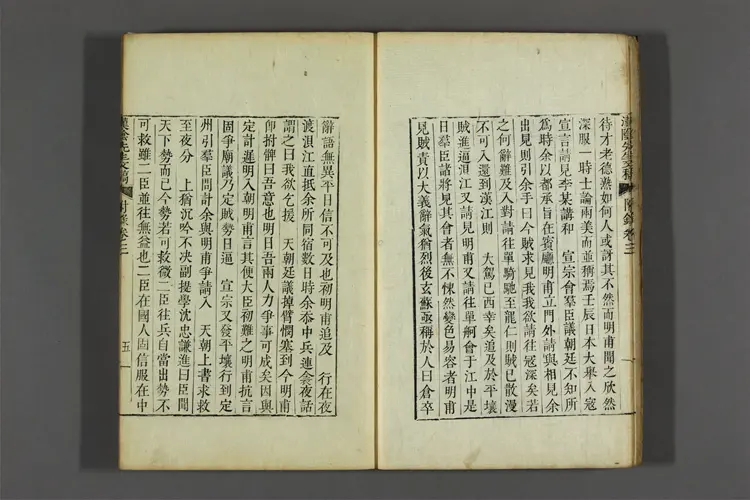 漢陰先生文稿 附錄卷之二
待才老德㷱如何人或訝其不然而明甫聞之欣然
深服一時士論兩美而並稱焉壬辰日本大擧入寇
宣言請見李某講和 宣宗會羣臣議朝廷不知所
爲時余以都承旨在賓廳明甫立門外請與相見余
出見則引余手曰今賊求見我我欲請往冠深矣若
之何辭難及入對請往單騎馳至龍仁則賊已散漫
不可入還到漢江則 大駕已西幸矣追及於平壤
賊進逼浿江又請見明甫又請往單舸會于江中是
日羣臣諸將見其會者無不悚然變色易容者明甫
見賊責以大義辭氣猶烈後玄蘇亟稱於人曰倉卒
辭語無異平日信不可及也初明甫追及 行在夜
渡浿江直抵余所同宿數日時余忝中兵連衾夜話
謂之曰我欲乞援 天朝廷議掉臂憫塞到今明甫
卽拊髀曰吾意也明日吾兩人力爭事可成矣因與
定計遲明入朝明甫言其便大臣初難之明甫抗言
固爭廟議乃定賊勢日逼 宣宗又發平壤行到定
州引羣臣問計余與明甫爭請入 天朝上書求救
至夜分 上猶沉吟不决副提學沈忠謙進曰臣聞
天下勢而已今勢若可救微二臣往兵自當出勢不
可救雖二臣並往無益也二臣在國人固信服在中
漢陰先生文稿 附錄卷之二 五